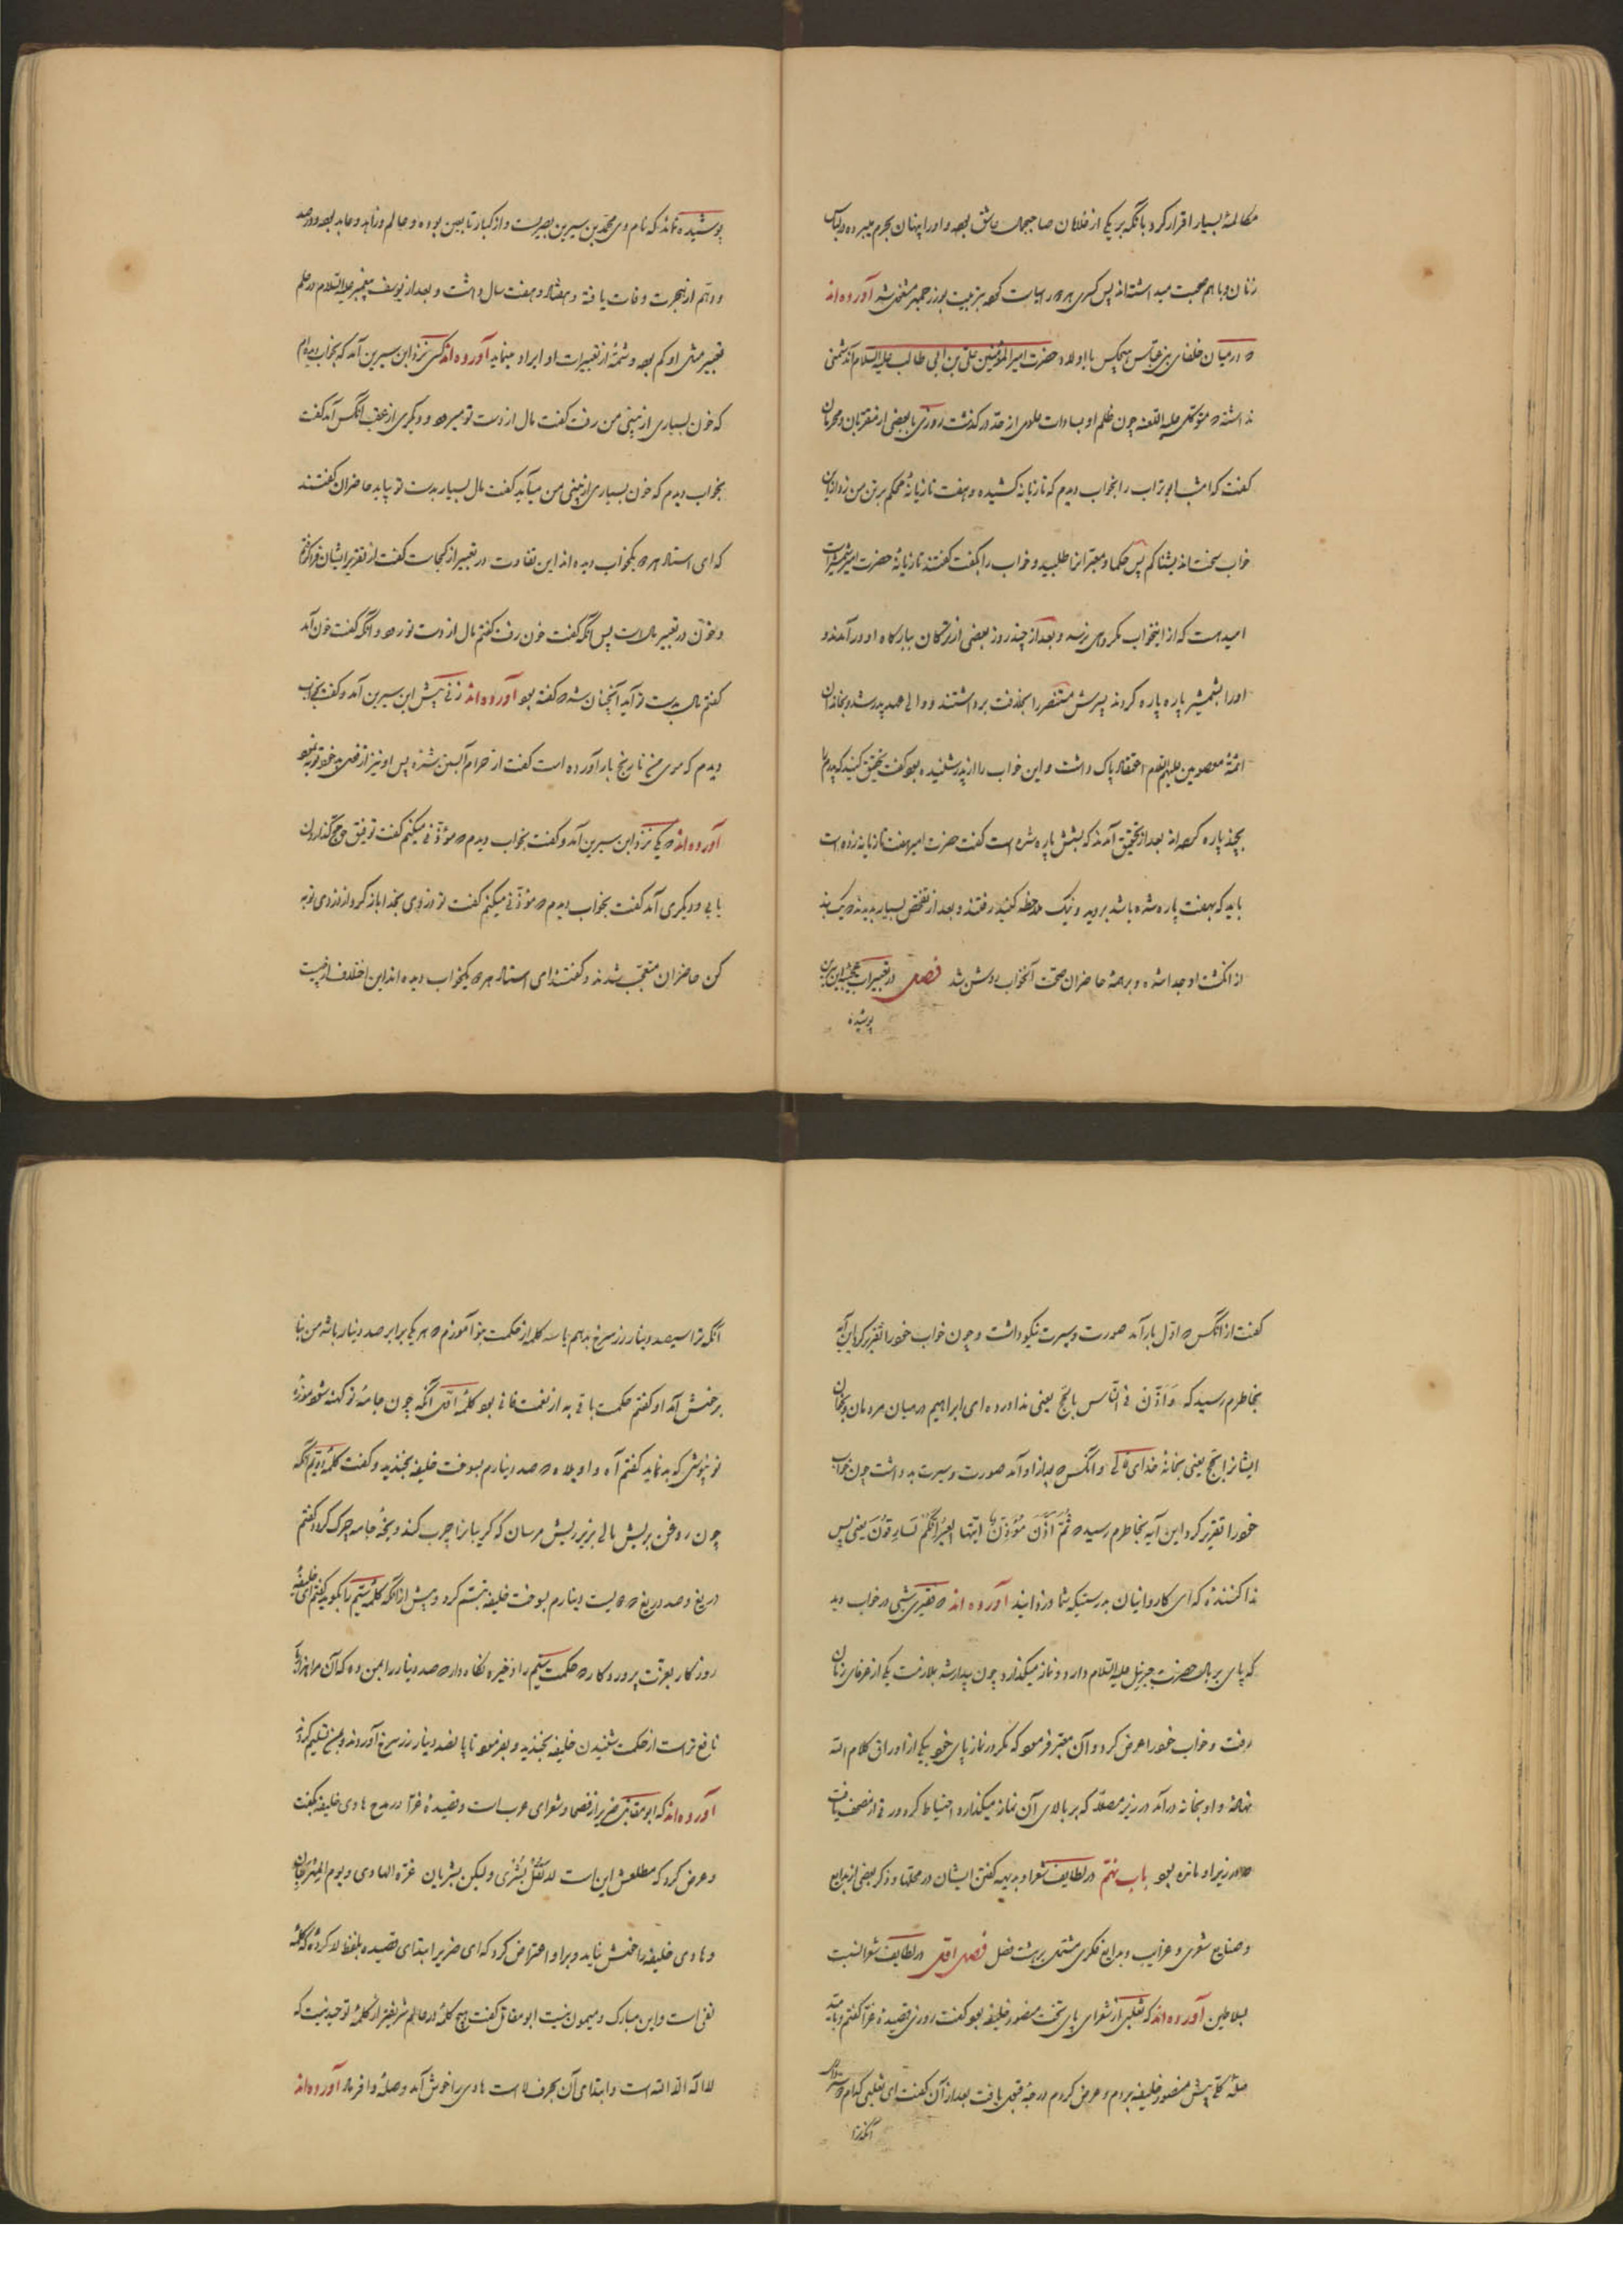 مکالمهٔ بسیار اقرار کرد بانکه بر یکی از غلامان صاحبجمال عاشق بود و او را پنهان بحرم میبرده و بلباس
زنان و با هم صحبت میداشته‌اند پس کسری هر دو را سیاست کرد بتربیت بوزرجمهر مشغول شد آورده‌اند
که در میان خلفای بنی عباس هیچکس با اولاد حضرت امیر المؤمنین علی بن ابی طالب علیه السلام آن دشمنی
نداشته که متوکل علیه اللعنه چون ظلم او بسادات علوی از حد در گذشت روزی با بعضی از مقربان و محرمان
گفت که امشب ابو تراب را بخواب دیدم که تازیانه کشیده و هفت تازیانهٔ محکم بر تن من زد و از این
خواب سخت اندیشناکم پس حکما و معبران را طلبید و خواب را بگفت گفتند تازیانهٔ حضرت امیر شمشیر است
امید هست که از اینخواب مکروهی نرسد و بعد از چند روز بعضی از ترکان ببارگاه او در آمدند و
او را بشمشیر پاره پاره کردند پسرش منتصر را بخلافت برداشتند و والی عهد پدر شد و بخاندان
ائمهٔ معصومین علیهم السلام اعتقاد پاک داشت و این خواب را از پدر شنیده بود گفت تحقیق کنید که پدرم را
بچند پاره کرده‌اند بعد از تحقیق آمدند که بشش پاره شده است گفت حضرت امیر هفت تازیانه زده است
باید که بهفت پاره شده باشد بروید و نیک ملاحظه کنید رفتند و بعد از تفحص بسیار بدیدند که یک بند
از انگشت او جدا شده و بر همهٔ حاضران صحت آنخواب روشن شد فصل در تعبیرات عجیب ابن سیرین
پوشیده
پوشیده نماند که نام وی محمد بن سیرین بصریست و از کبار تابعین بوده و عالم و زاهد و عابد بود و در صد
و دهم از هجرت وفات یافته و هفتاد و هفت سال داشت و بعد از یوسف پیغمبر علیه السلام در علم
تعبیر مثل او کم بود و شمهٔ از تعبیرات او ایراد مینماید آورده‌اند کسی نزد ابن سیرین آمد که بخواب دیده‌ام
که خون بسیاری از بینی من رفت گفت مال از دست تو میرود و دیگری از عقب آنکس آمد گفت
بخواب دیدم که خون بسیاری از بینی من میآید گفت مال بسیار بدست تو بیاید حاضران گفتند
که ای استاد هر دو یکخواب دیده‌اند این تفاوت در تعبیر از کجاست گفت از تقریر ایشان فرا گرفتم
و خون در تعبیر مال است پس آنکه گفت خون رفت گفتم مال از دست تو رود و آنکه گفت خون آمد
گفتم مال بدست تو آید آنچنان شد که گفته بود آورده‌اند زنی پیش ابن سیرین آمد و گفت بخواب
دیدم که موی من نارنج بار آورده است گفت از حرام آبستن شده پس او نیز از فعل بد خود توبه نمود
آورده‌اند که یکی نزد ابن سیرین آمد و گفت بخواب دیدم که مؤذنی میکنم گفت توفیق حج گذاردن
یابی و دیگری آمد گفت بخواب دیدم که مؤذنی میکنم گفت تو دزدی بخدا باز گرد و از دزدی توبه
کن حاضران متعجب شدند و گفتند ای استاد هر دو یکخواب دیده‌اند این اختلاف از چیست
گفت از آنکس که اول بار آمد صورت و سیرت نیکو داشت و چون خواب خود را تقریر کرد این آیه
بخاطرم رسید که وَاَذِّنْ فی النّاسِ بالحَجّ یعنی ندا در ده ای ابراهیم در میان مردمان و بخوان
ایشانرا بحج یعنی بخانهٔ خدای تعالی و آنکس که بعد از او آمد صورت و سیرت بد داشت چون خواب
خود را تقریر کرد این آیه بخاطرم رسید که ثُمَّ اَذَّنَ مُؤَذِّنٌ اَیَّتُها العیرُ اِنَّکُم لَسارِقُونَ یعنی پس
ندا کنندهٔ که ای کاروانیان بدرستیکه شما دزدانید آورده‌اند که فقیری شبی در خواب دید
که پای بر بال حضرت جبرئیل علیه السلام دارد و نماز میگذارد چون بیدار شد بملازمت یکی از عرفای زمان
رفت و خواب خود را عرض کرد و آن معبر فرمود که مگر در نماز پای خود بیکی از اوراق کلام الله
نهادهٔ و او بخانه در آمد در زیر مصلا که بر بالای آن نماز میگذارد احتیاط کرد ورقی از مصحف یافت
که در زیر او مانده بود باب نهم در لطایف شعرا و بدیهه گفتن ایشان در محلها و ذکر بعضی از بدایع
و صنایع شعری و غرایب و بدایع فکری مشتمل بر هشت فصل فصل اول در لطایف شعرا نسبت
بسلاطین آورده‌اند که ثعلبی از شعرای پای تخت منصور خلیفه بود گفت روزی قصیدهٔ غرا گفتم و بامید
صلهٔ کلی پیش منصور خلیفه بردم و عرض کردم درجهٔ قبول یافت بعد از آن گفت ای ثعلبی کدام دوستر داری
آنکه ترا
آنکه ترا سیصد دینار زر سرخ بدهم یا سه کلمه از حکمت بتو آموزم که هر یکی برابر صد دینار باشد من بنا
بر خوش آمد او گفتم حکمت باقی به از نعمت فانی بود کلمهٔ اول آنکه چون جامهٔ تو کهنه شود موزهٔ
نو نپوشی که بد نماید گفتم آه و اویلاه که صد دینارم بسوخت خلیفه بخندید و گفت کلمهٔ دویم آنکه
چون روغن بریش مالی بزیر ریش مرسان که گریبانرا چرب کند و یخهٔ جامه چرک گردد گفتم
دریغ و صد دریغ که دویست دینارم بسوخت خلیفه تبسم کرد و پیش از آنکه کلمهٔ سیم را بگوید گفتم ای خلیفهٔ
روزگار بعزت پروردگار که حکمت سیم را ذخیره نگاه دار و صد دینار را بمن ده که آن مرا هزار بار
نافع تر است از حکمت شنیدن خلیفه بخندید و بفرمود تا پانصد دینار زر سرخ آوردند و بمن تسلیم کردند
آورده‌اند که ابو مقاتل ضریر از فصحا و شعرای عرب است و قصیدهٔ غرا در مدح هادی خلیفه بگفت
و عرض کرد که مطلعش این است لا تقل بُشری ولکن بشریان غرّه الهادی و یوم المهرجان
و هادی خلیفه را خوش نیاید و بر او اعتراض کرد که ای ضریر ابتدای قصیده بلفظ لا کردهٔ که کلمهٔ
نفی است و این مبارک و میمون نیست ابو مقاتل گفت هیچ کلمهٔ در عالم شریفتر از کلمهٔ توحید نیست که
لا اله الا الله است و ابتدای آن بحرف لا است هادی را خوش آمد و صلهٔ وافر داد آورده‌اند